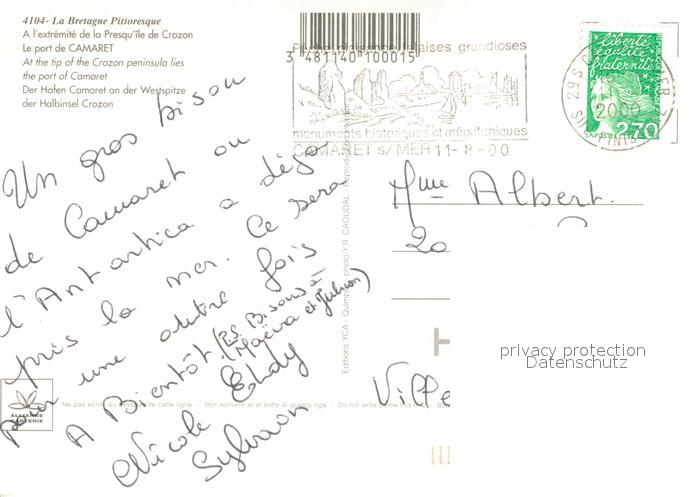 4104- La Bretagne Pittoresque
A l'extrémité de la Presqu'île de Crozon
Le port de CAMARET
At the tip of the Crozon peninsula lies
the port of Camaret
Der Hafen Camaret an der Westspitze
der Halbinsel Crozon
3 481140 100015
falaises grandioses
monuments historiques et mégalithiques
CAMARET s/ MER 11-8-00
29 S
2000
SUD FINIS
liberté
égalité
fraternité
LA POSTE
2,70
Un gros bisou
de Camaret ou
l'Antartica a déjà
pris la mer. Ce sera
pour une autre fois
A Bientôt. (P.S. Bisous à
Maëva et Julien)
Nicole Eddy
Sylvain
Mme Albert.
20
Ville
Editions YCA - Quimper - photo Y.R. CAOUDAL - Reproduction
ALLIANCE
CARTERIE
Ne pas écrire au dessous de cette ligne - Non scrivere al di sotto di questa riga - Do not write below this line
privacy protection
Datenschutz